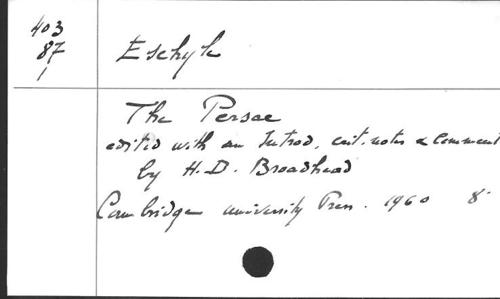 403
87
1
Eschyle
The Persae
edited with an Introd., crit. notes & comment
by H. D. Broadhead
Cambridge university Press. 1960 8°